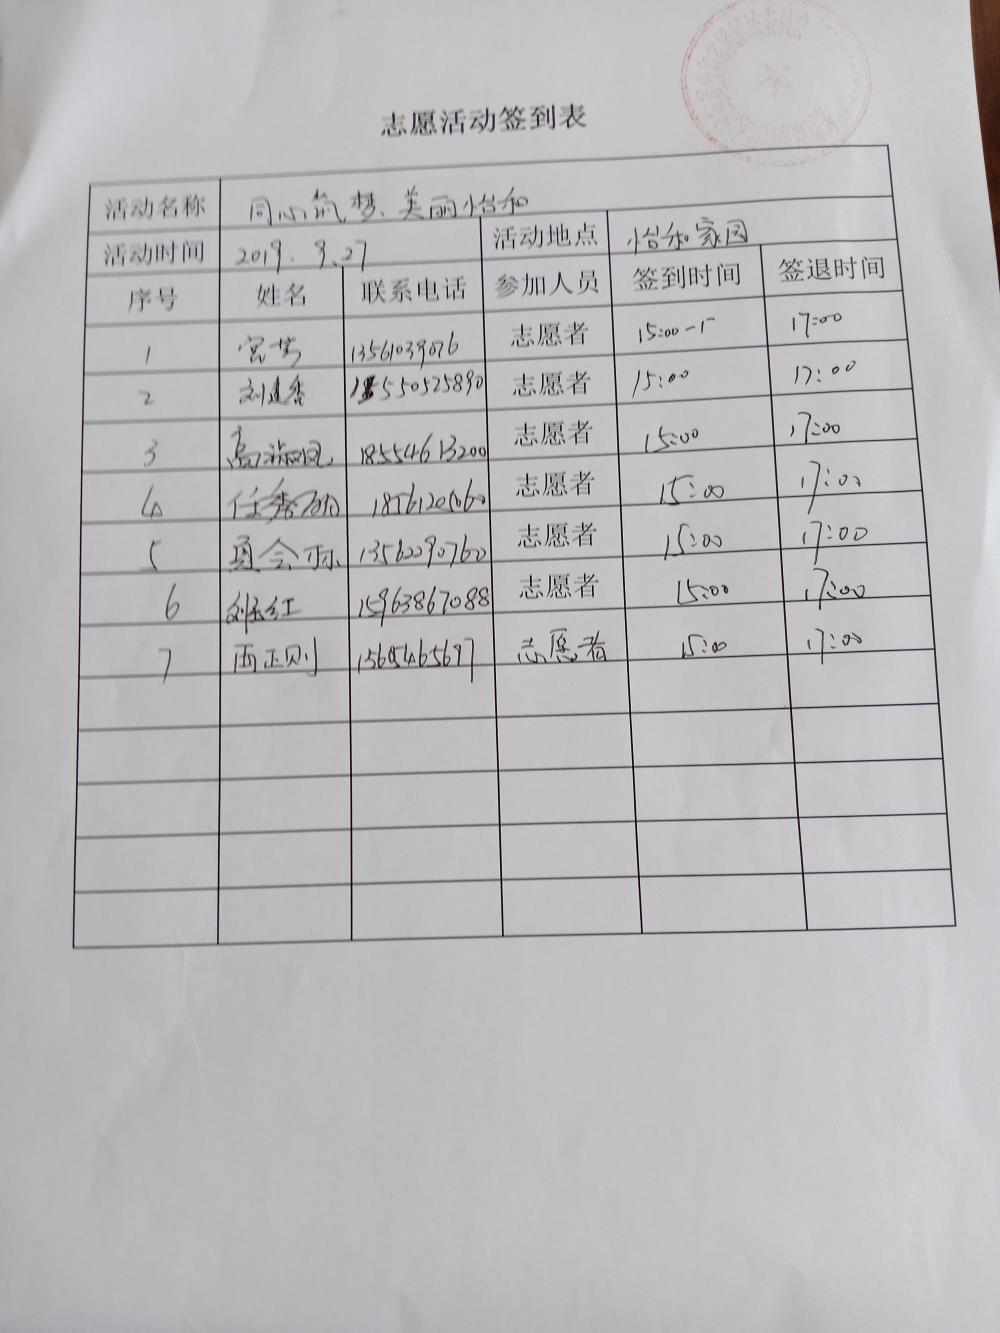 志愿活动签到表
活动名称 同心筑梦、美丽怡和
活动时间 2019.9.27 活动地点 怡和家园
序号 姓名 联系电话 参加人员 签到时间 签退时间
1 13561039076 志愿者 15:00-1 17:00
2 刘建香 15550525890 志愿者 15:00 17:00
3 高淑凤 18554613200 志愿者 15:00 17:00
4 任秀 志愿者 15:00 17:00
5 13562090760 志愿者 15:00 17:00
6 红 15963867088 志愿者 15:00 17:00
7 正则 15605465697 志愿者 15:00 17:00